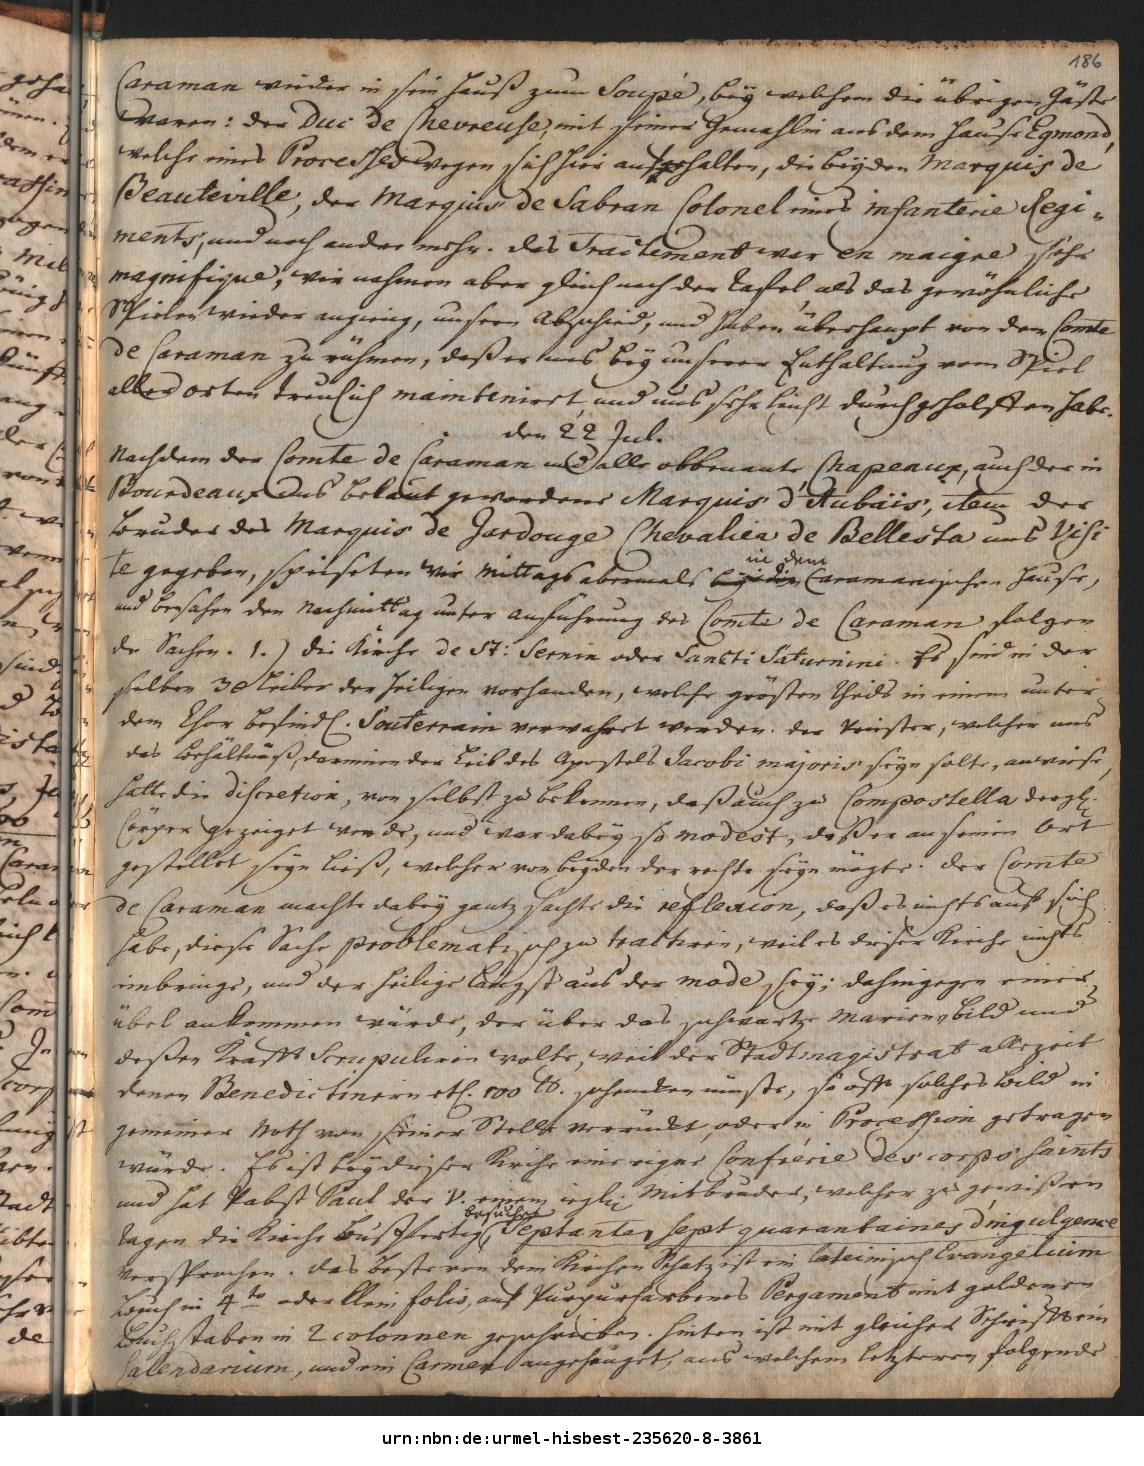 186
Caraman wieder in sein Hauß zum Soupé, bey welchem die übrigen Gäste
waren: der Duc de Chevreuse, mit seiner Gemahlin aus dem Hause Egmond,
welche eines Processes wegen sich hier aufhalten, die beyden Marquis de
Beauteville, der Marquis de Sabran Colonel eines infanterie Regi-
ments, und noch andre mehr. das Traitement war en maigre sehr
magnifique, wir nahmen aber gleich nach der Tafel als das gewöhnliche
Spielen wieder angieng, unsern Abschied, und haben überhaupt von dem Comte
de Caraman zu rühmen, daß er uns bey unserer Enthaltung vom Spiel
aller orten treulich mainteniret, und uns sehr leicht durchgeholffen habe.
den 22 Jul.
Nachdem der Comte de Caraman und alle obbenante Chapeaux, auch der in
Bourdeaux uns bekant gewordene Marquis d'Aubais, item der
bruder des Marquis de Gardouge Chevalier de Bellesta uns Visi
te gegeben, speiseten wir Mittags abermals in dem Caramanischen Hause,
und besahen den Nachmittag unter anführung des Comte de Caraman folgen
de Sachen. 1.) die Kirche de St: Sernin oder Sancti Saturnini. Es sind in der
selben 30 Leiber der Heiligen vorhanden, welche grösten theils in einem unter
dem Chor befindl. Souterrain verwahret werden. der Priester, welcher uns
das Behältnüß, darinnen der Leib des Apostels Jacobi majoris seyn solte, anwiese,
hatte die discretion, von selbst zu bekennen, daß auch zu Compostella dergl.
Cörper gezeiget werde, und war dabey so modest, daß er an seinen Ort
gestellet seyn ließ, welcher von beyden der rechte seyn mögte. der Comte
de Caraman machte dabey gantz sachte die reflexion, daß es nichts auf sich
habe, diese Sache problematisch zu tractiren, weil es dieser Kirche nichts
einbringe, und der Heilige längst aus der mode sey; dahingegen einer
übel ankommen würde, der über das schwartze Marien bild und
deßen Krafft Scrupuliren wolte, weil der Stadtmagistrat allezeit
denen Benedictinern etl. 100 tt. schencken müste, so offt solches bild in
gemeiner Noth von seiner Stelle verrückt, oder in Procession getragen
würde. Es ist bey dieser Kirche eine eigne Confrérie des corps saints
und hat Pabst Paul der V. einem iegl. Mitbruder, welcher zu gewißen
Tagen die Kirche bußfertig besuchet, Septante sept quarantaines d'ingulgence
versprochen. das beste von dem Kirchen Schatz ist ein lateinisch Evangelium
buch in 4to oder klein folio, auf Purpurfarbenes Pergament mit goldenen
buchstaben in 2 colonnen geschrieben. hinten ist mit gleicher Schrifft ein
Calendarium, und ein Carmen angehänget, aus welchem letzteren folgende
urn:nbn:de:urmel-hisbest-235620-8-3861